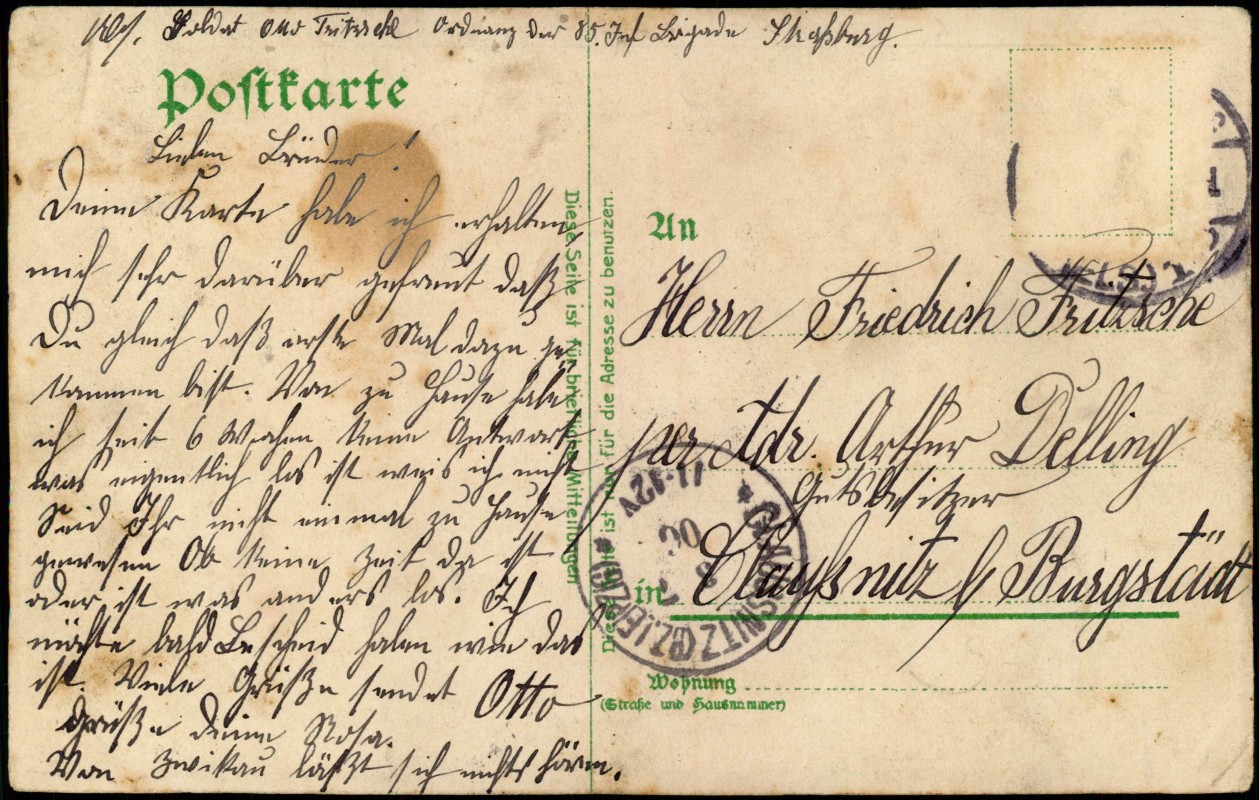 Abs. Soldat Otto Fritzsche Ordnanz der 85. Inf Brigade Straßburg.
Postkarte
Lieber Brüder!
Deine Karte habe ich erhalten
mich sehr darüber gefreut daß
Du gleich daß erste Mal dazu ge-
kommen bist. Von zu Hause habe
ich seit 6 Wochen keine Antwort
was eigentlich los ist weis ich nicht
Seid Ihr nicht einmal zu Hause
gewesen Ob keine Zeit da ist
oder ist was anders los. Ich
möchte bald Bescheid haben wie das
ist. Viele Grüße sendet Otto
Grüße deine Rosa.
Von Zwikau läßt sich nichts hören.
Diese Seite ist für briefliche Mitteilungen
Diese Seite ist nur für die Adresse zu benutzen.
An
Herrn Friedrich Fritzsche
per Adr. Arthur Delling
Gutsbesitzer
in Claußnitz b Burgstädt
Wohnung
(Straße und Hausnummer)
CLAUSSNITZ (BZ. LEIPZIG)
11-12V